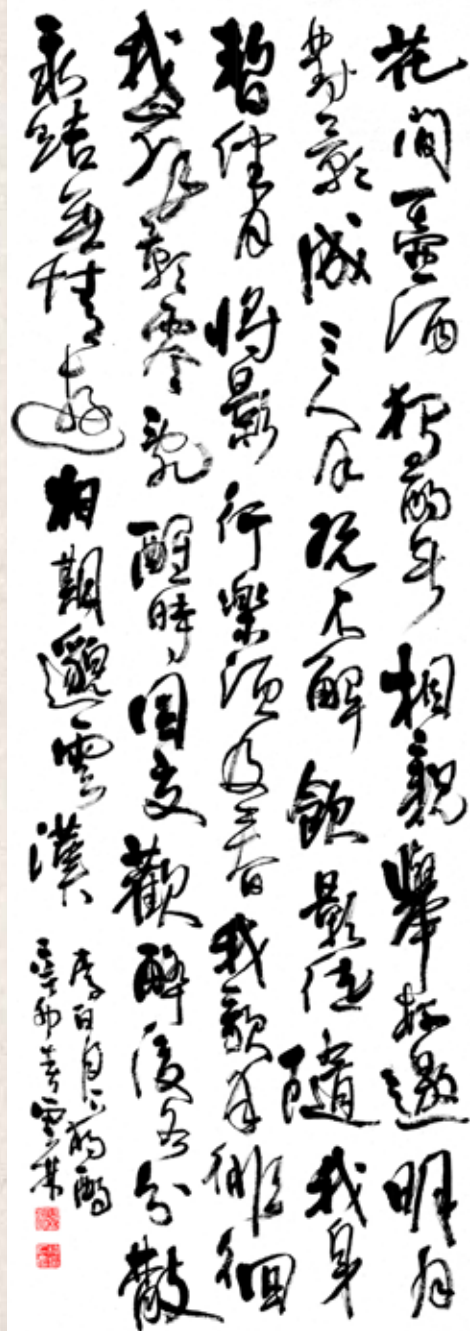 花間一壺酒獨酌無相親舉杯邀明月
對影成三人月既不解飲影徒隨我身
暫伴月將影行樂須及春我歌月徘徊
我舞影零亂醒時同交歡醉後各分散
永結無情遊相期邈雲漢
李白月下獨酌
辛卯春雲林